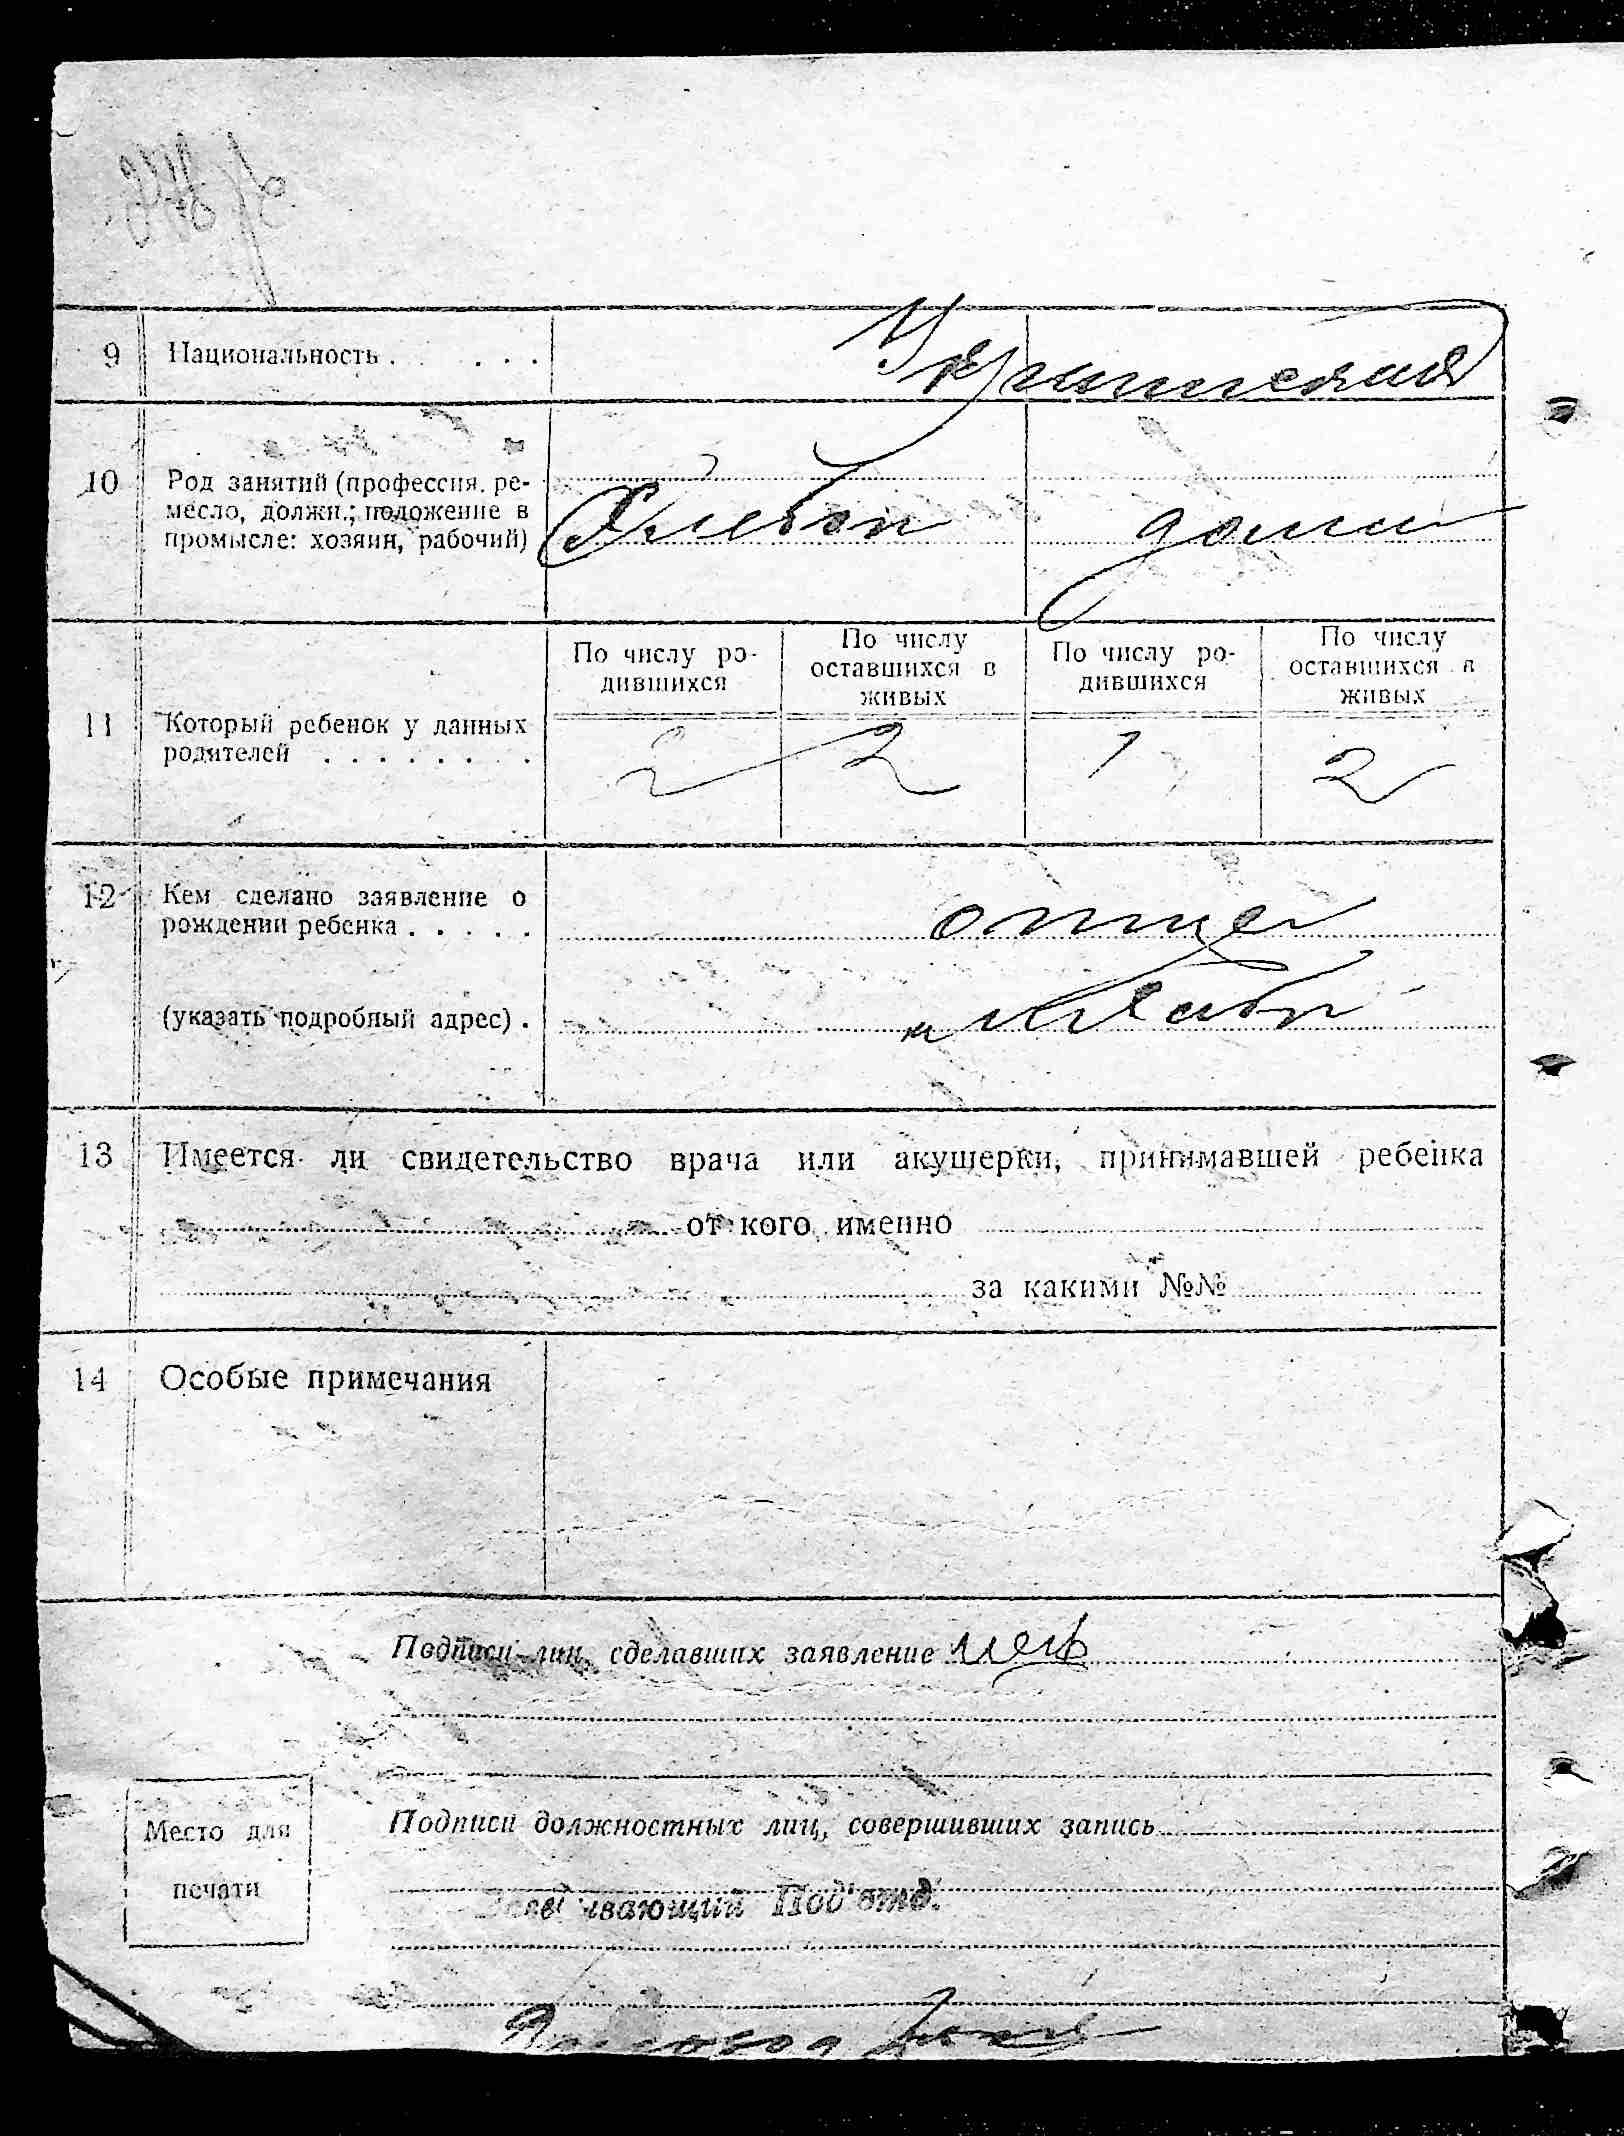 9 Национальность . . . . . Украинская
10 Род занятий (профессия, ре-
месло, должн.; положение в
промысле: хозяин, рабочий) Хлебоп доми
По числу ро-
дившихся
По числу
оставшихся в
живых
По числу ро-
дившихся
По числу
оставшихся в
живых
11 Который ребенок у данных
родителей . . . . . . . . 2 2 1 2
12 Кем сделано заявление о
рождении ребенка . . . . . отцем
(указать подробный адрес) .
13 Имеется ли свидетельство врача или акушерки, принимавшей ребенка
от кого именно
за какими №№
14 Особые примечания
Подписи лиц, сделавших заявление
Подписи должностных лиц, совершивших запись
Место для
печати
Заведывающий Под'отд.